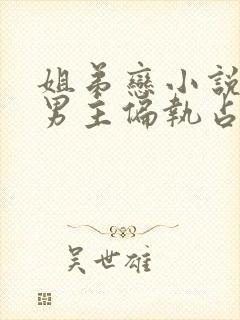 姐弟戀小說
男主偏執占
吳世雄